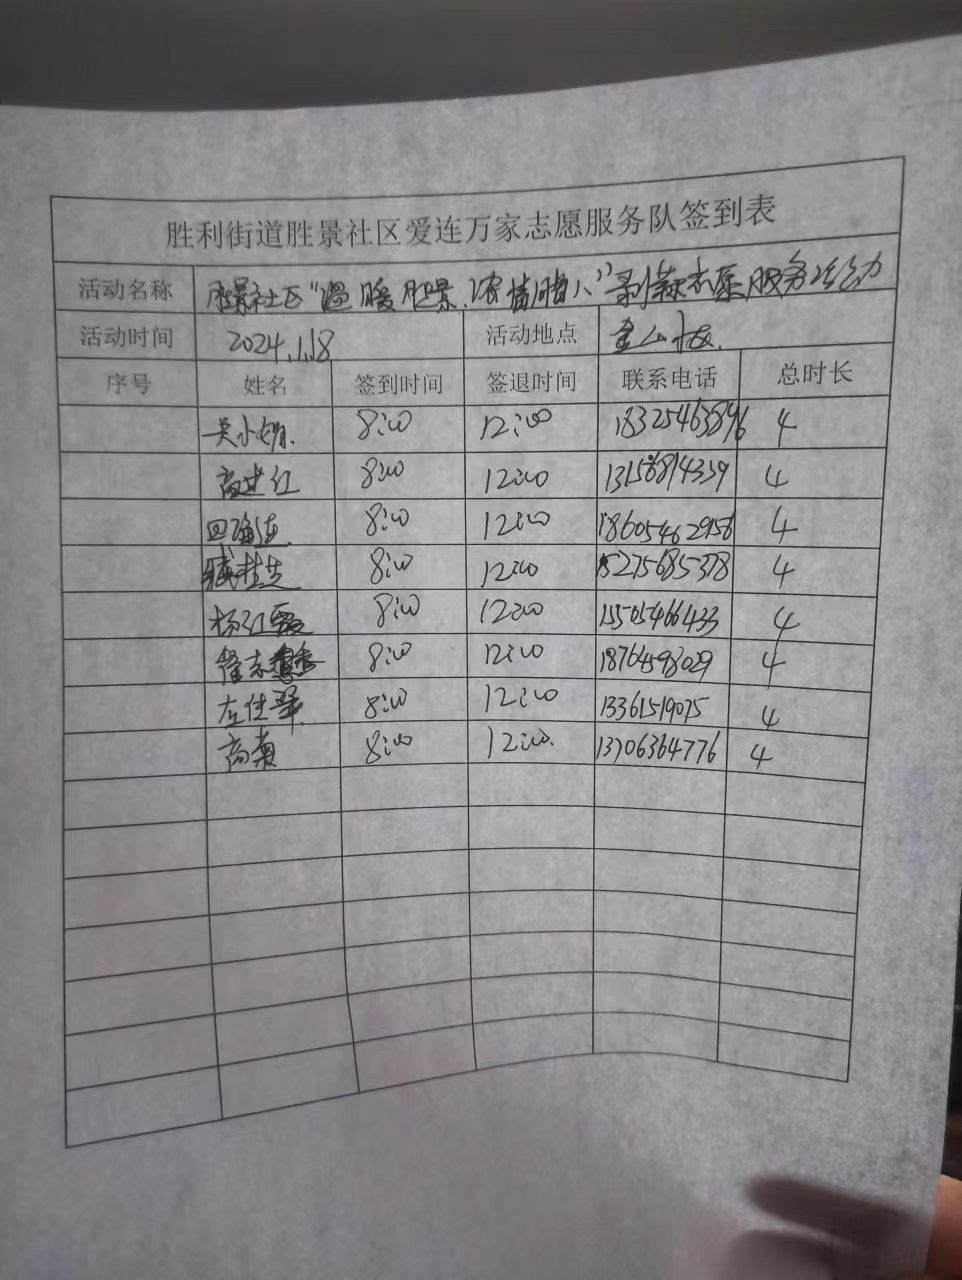 胜利街道胜景社区爱连万家志愿服务队签到表
活动名称 胜景社区“温暖胜景.浓情腊八”志愿服务活动
活动时间 2024.1.18 活动地点
序号 姓名 签到时间 签退时间 联系电话 总时长
吴小娟 8:00 12:00 18325463896 4
高进红 8:00 12:00 4
8:00 12:00 18605462956 4
臧桂芝 8:00 12:00 15275685378 4
杨红霞 8:00 12:00 15505466433 4
8:00 12:00 18764598029 4
左佳翠 8:00 12:00 13361519075 4
高菊 8:00 12:00. 13706364776 4